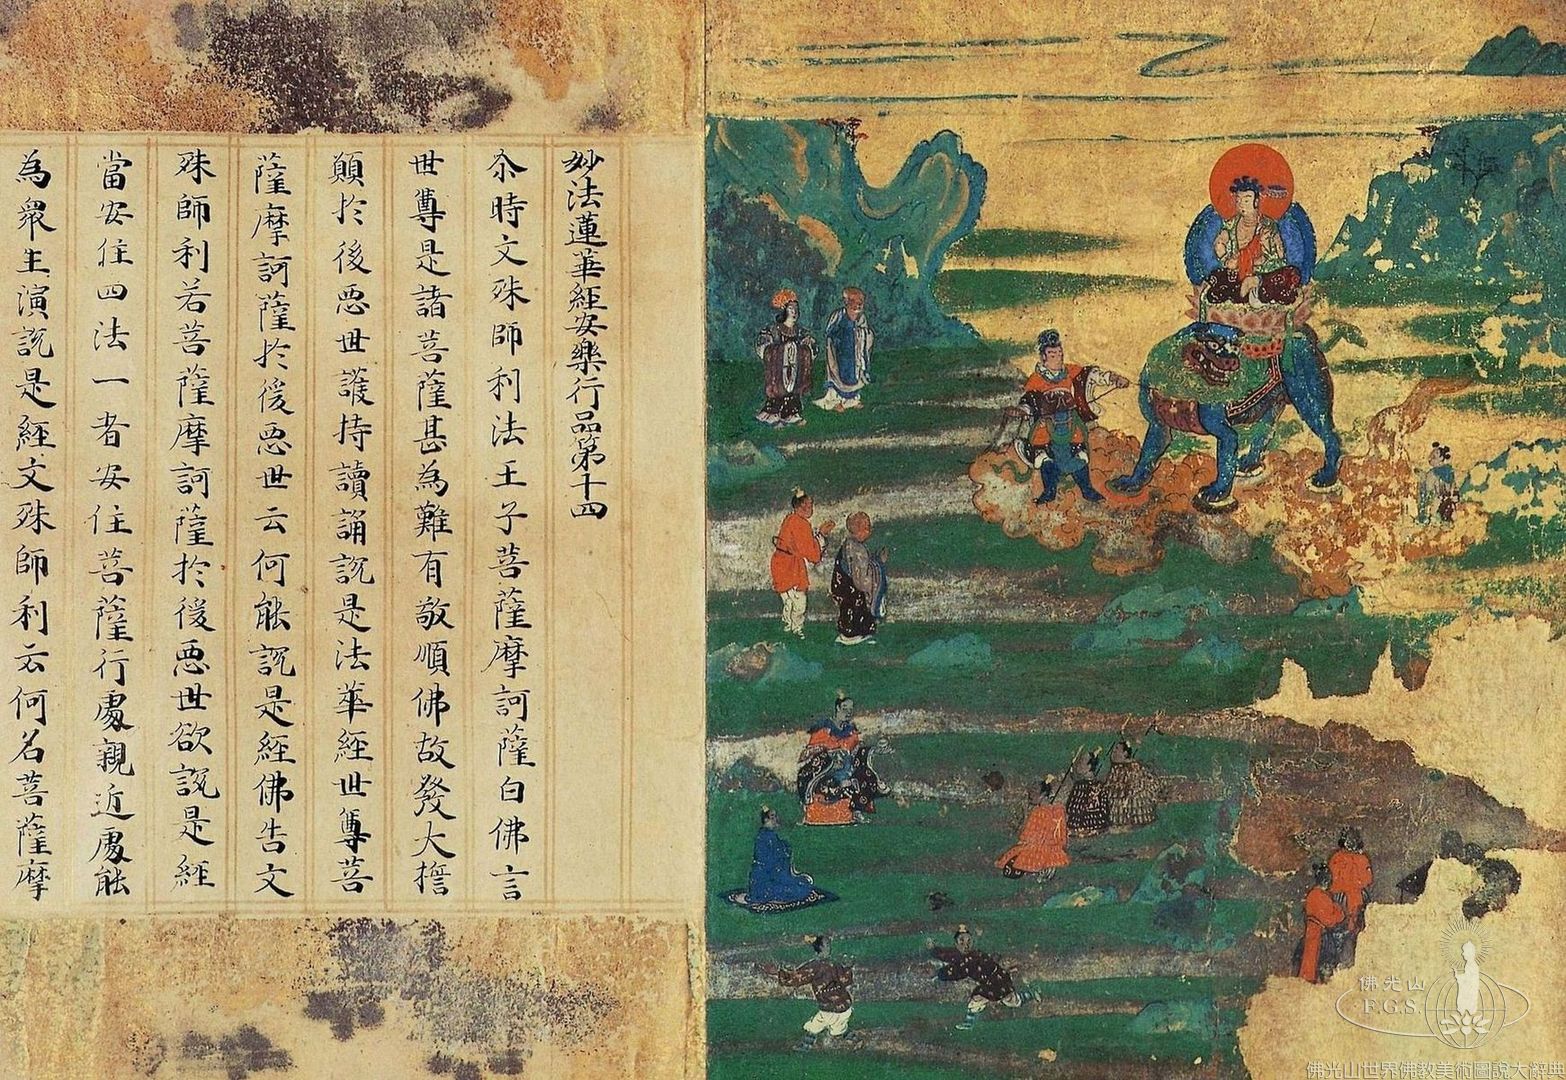 妙法蓮華經安樂行品第十四
尒時文殊師利法王子菩薩摩訶薩白佛言
世尊是諸菩薩甚為難有敬順佛故發大擔
願於後惡世護持讀誦說是法華經世尊菩
薩摩訶薩於後惡世云何能說是經佛告文
殊師利若菩薩摩訶薩於後惡世欲說是經
當安住四法一者安住菩薩行處親近處能
為衆生演說是經文殊師利云何名菩薩摩
佛光山
F.G.S.
佛光山世界佛教美術圖說大辭典